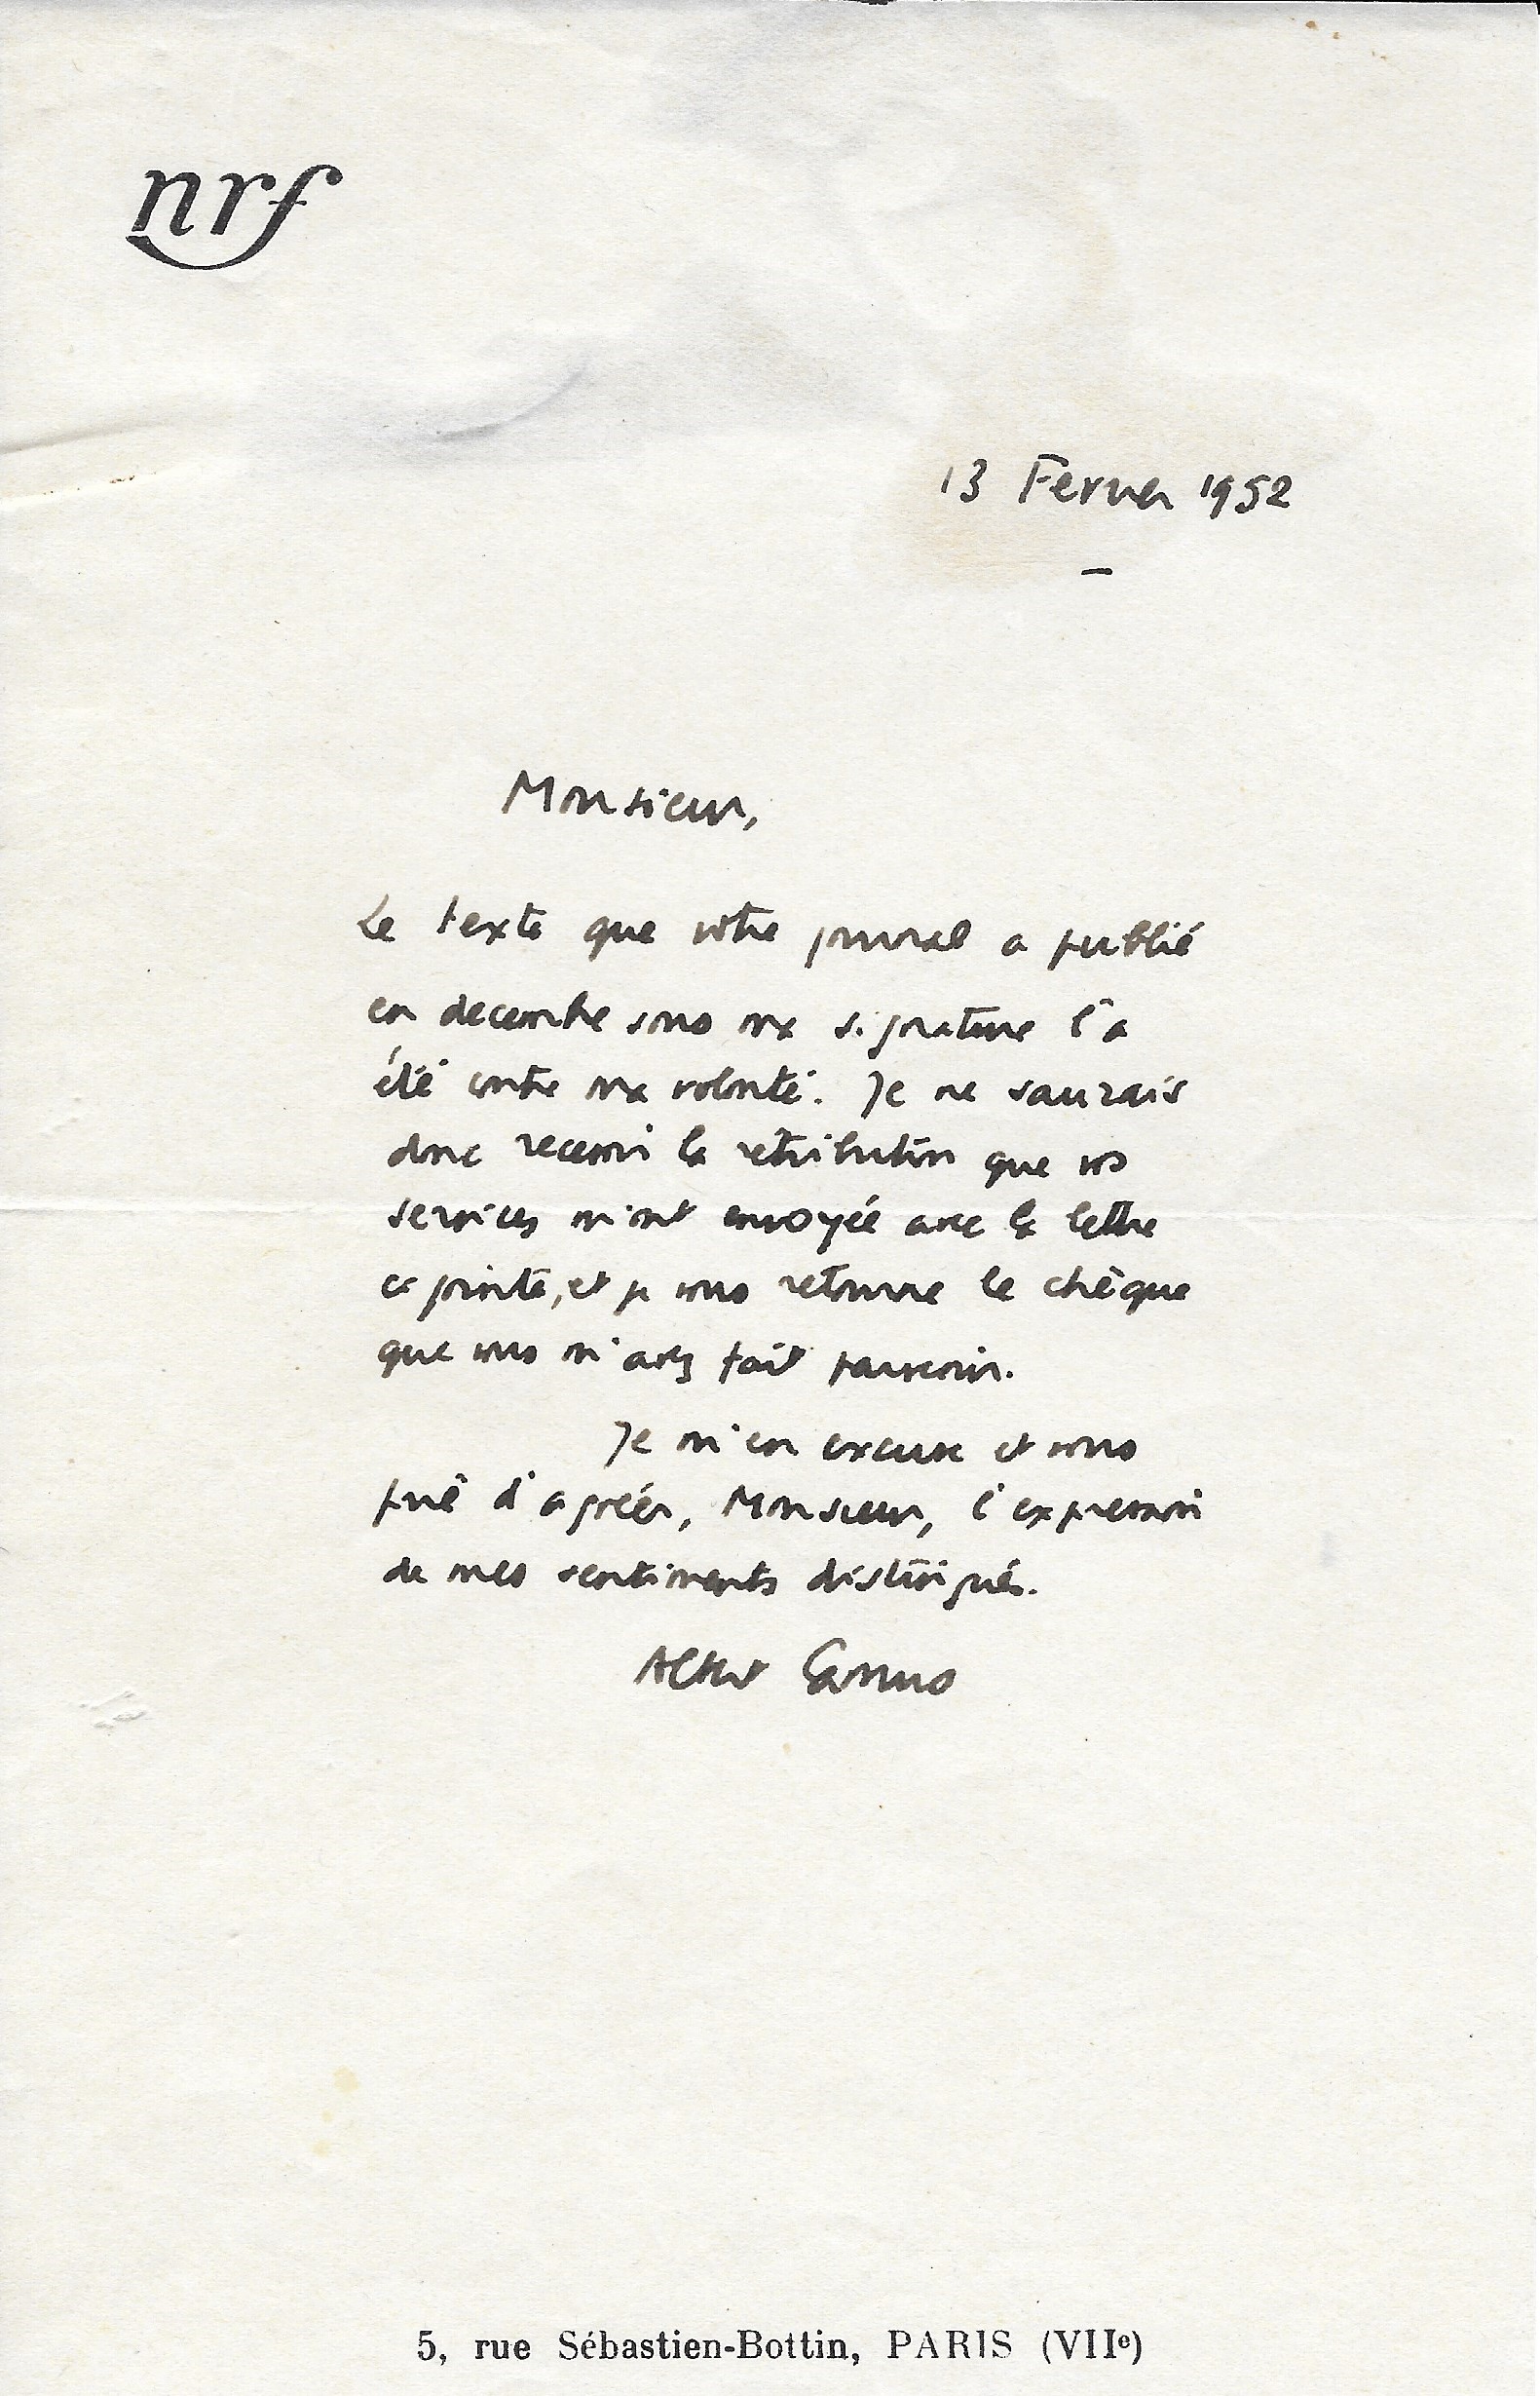 nrf
13 Fevrier 1952
Monsieur,
Le texte que votre journal a publié
en decembre sous ma signature l'a
été contre ma volonté. Je ne saurais
donc recevoir la retribution que vos
services m'ont envoyée avec la lettre
ci jointe, et je vous retourne le chèque
que vous m'avez fait parvenir.
Je m'en excuse et vous
prie d'agréer, Monsieur, l'expression
de mes sentiments distingués.
Albert Camus
5, rue Sébastien-Bottin, PARIS (VIIᵉ)